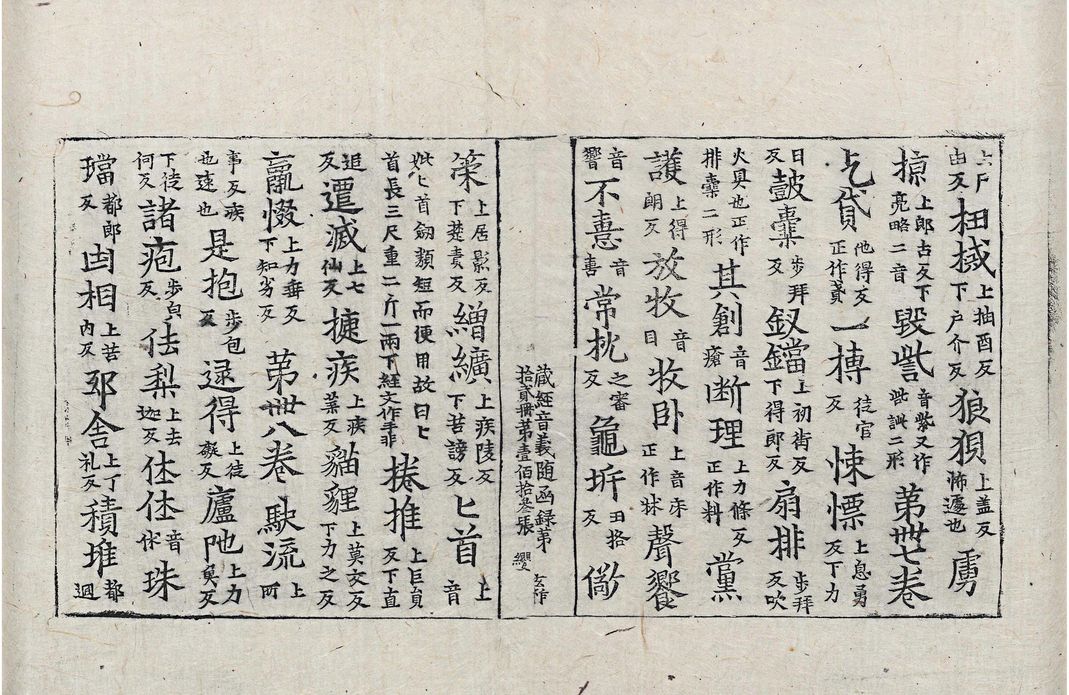 由反杻械上抽酉反下戶介反狼狽上盖反怖遽也虜
掠上郎古反下亮略二音毀訾音紫又作呰訿二形第卅七卷
乞貸他得反正作貣一摶徒官反悚慓上息勇反下力
日反鼓橐步拜反釵鐺上初街反下得郎反扇排步拜反吹
火具也正作排橐二形其創音瘡断理上力條反正作料黨
護上得朗反放牧音目牧卧上音床正作牀聲饗
音響不憙音喜常抌之審反龜坼丑格反
藏經音義隨函錄第拾貳冊第壹佰拾叁張 纓 玄作
策上居影反下楚責反繒纊上疾陵反下苦謗反匕首上音
妣匕首劒類短而便用故曰匕首長三尺重二斤一兩下經文作手非捲推上巨員反下直
追反遷滅上七仙反揵疾上疾葉反貓貍上莫交反下力之反
羸惙上力垂反下知劣反第卅八卷駛流上所
事反疾也速也是抱步包反逮得上徒礙反廬陁上力魚反
下徒何反諸疱步皃反佉梨上去迦反音珠
璫都郎反凷相上苦內反邳舍上丁礼反積堆都迴